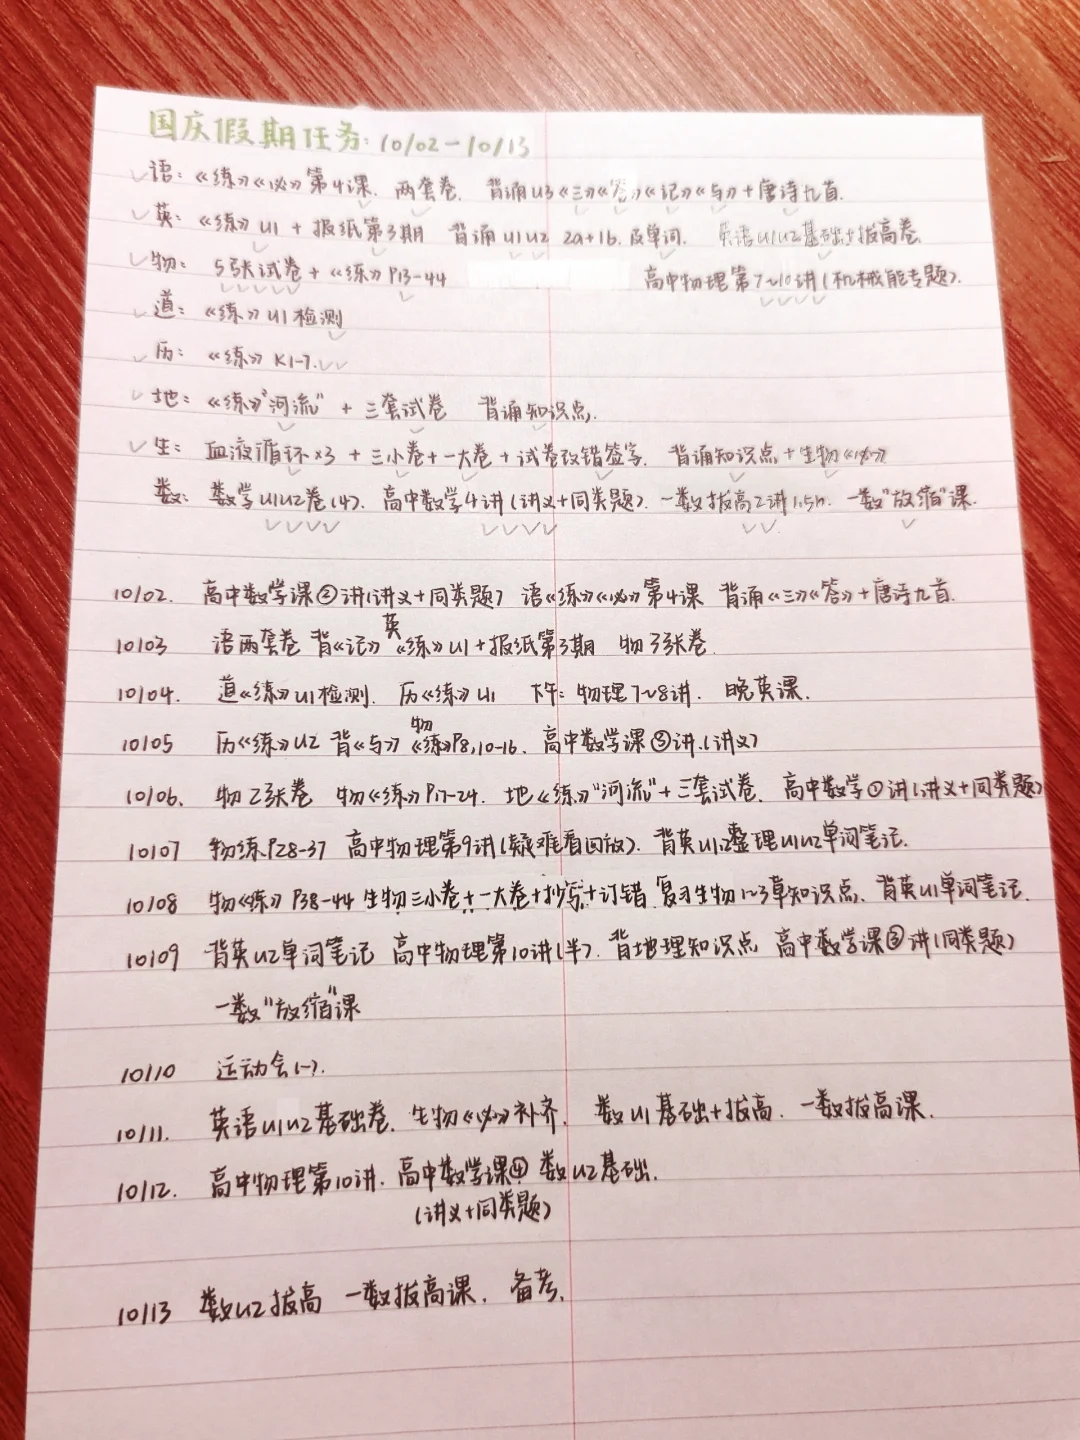 国庆假期任务:10/02-10/13
语:《练》《必》第4课. 两套卷. 背诵U3《三》《答》《记》《与》+唐诗九首.
英:《练》U1+报纸第3期 背诵U1U2 2a+1b.及单词. 英语U1U2基础+拔高卷
物: 5张试卷+《练》P13-44 高中物理第7~10讲(机械能专题).
道:《练》U1检测
历:《练》K1-7.
地:《练》"河流"+三套试卷 背诵知识点.
生: 血液循环×3+三小卷+一大卷+试卷改错签字. 背诵知识点+生物《必》
数: 数学U1U2卷(4). 高中数学4讲(讲义+同类题). 一数拔高2讲1.5h. 一数"放缩"课.
10/02. 高中数学课②讲(讲义+同类题) 语《练》《必》第4课 背诵《三》《答》+唐诗九首.
10/03 语两套卷 背《记》 英《练》U1+报纸第3期 物3张卷.
10/04. 道《练》U1检测. 历《练》U1 下午:物理7~8讲. 晚英课.
10/05 历《练》U2 背《与》 物《练》P8,10-16. 高中数学课③讲.(讲义)
10/06. 物2张卷 物《练》P17-24. 地《练》"河流"+三套试卷. 高中数学①讲(讲义+同类题)
10/07 物练P28-37 高中物理第9讲(疑难看回放). 背英U1,2整理U1U2单词笔记.
10/08 物《练》P38-44 生物三小卷+一大卷+抄写+订错 复习生物1~3章知识点. 背英U1单词笔记.
10/09 背英U2单词笔记 高中物理第10讲(半). 背地理知识点 高中数学课③讲(同类题)
一数"放缩"课
10/10 运动会(~).
10/11. 英语U1U2基础卷. 生物《必》补齐. 数U1基础+拔高. 一数拔高课.
10/12. 高中物理第10讲. 高中数学课④ 数U2基础.
(讲义+同类题)
10/13 数U2拔高 一数拔高课. 备考.